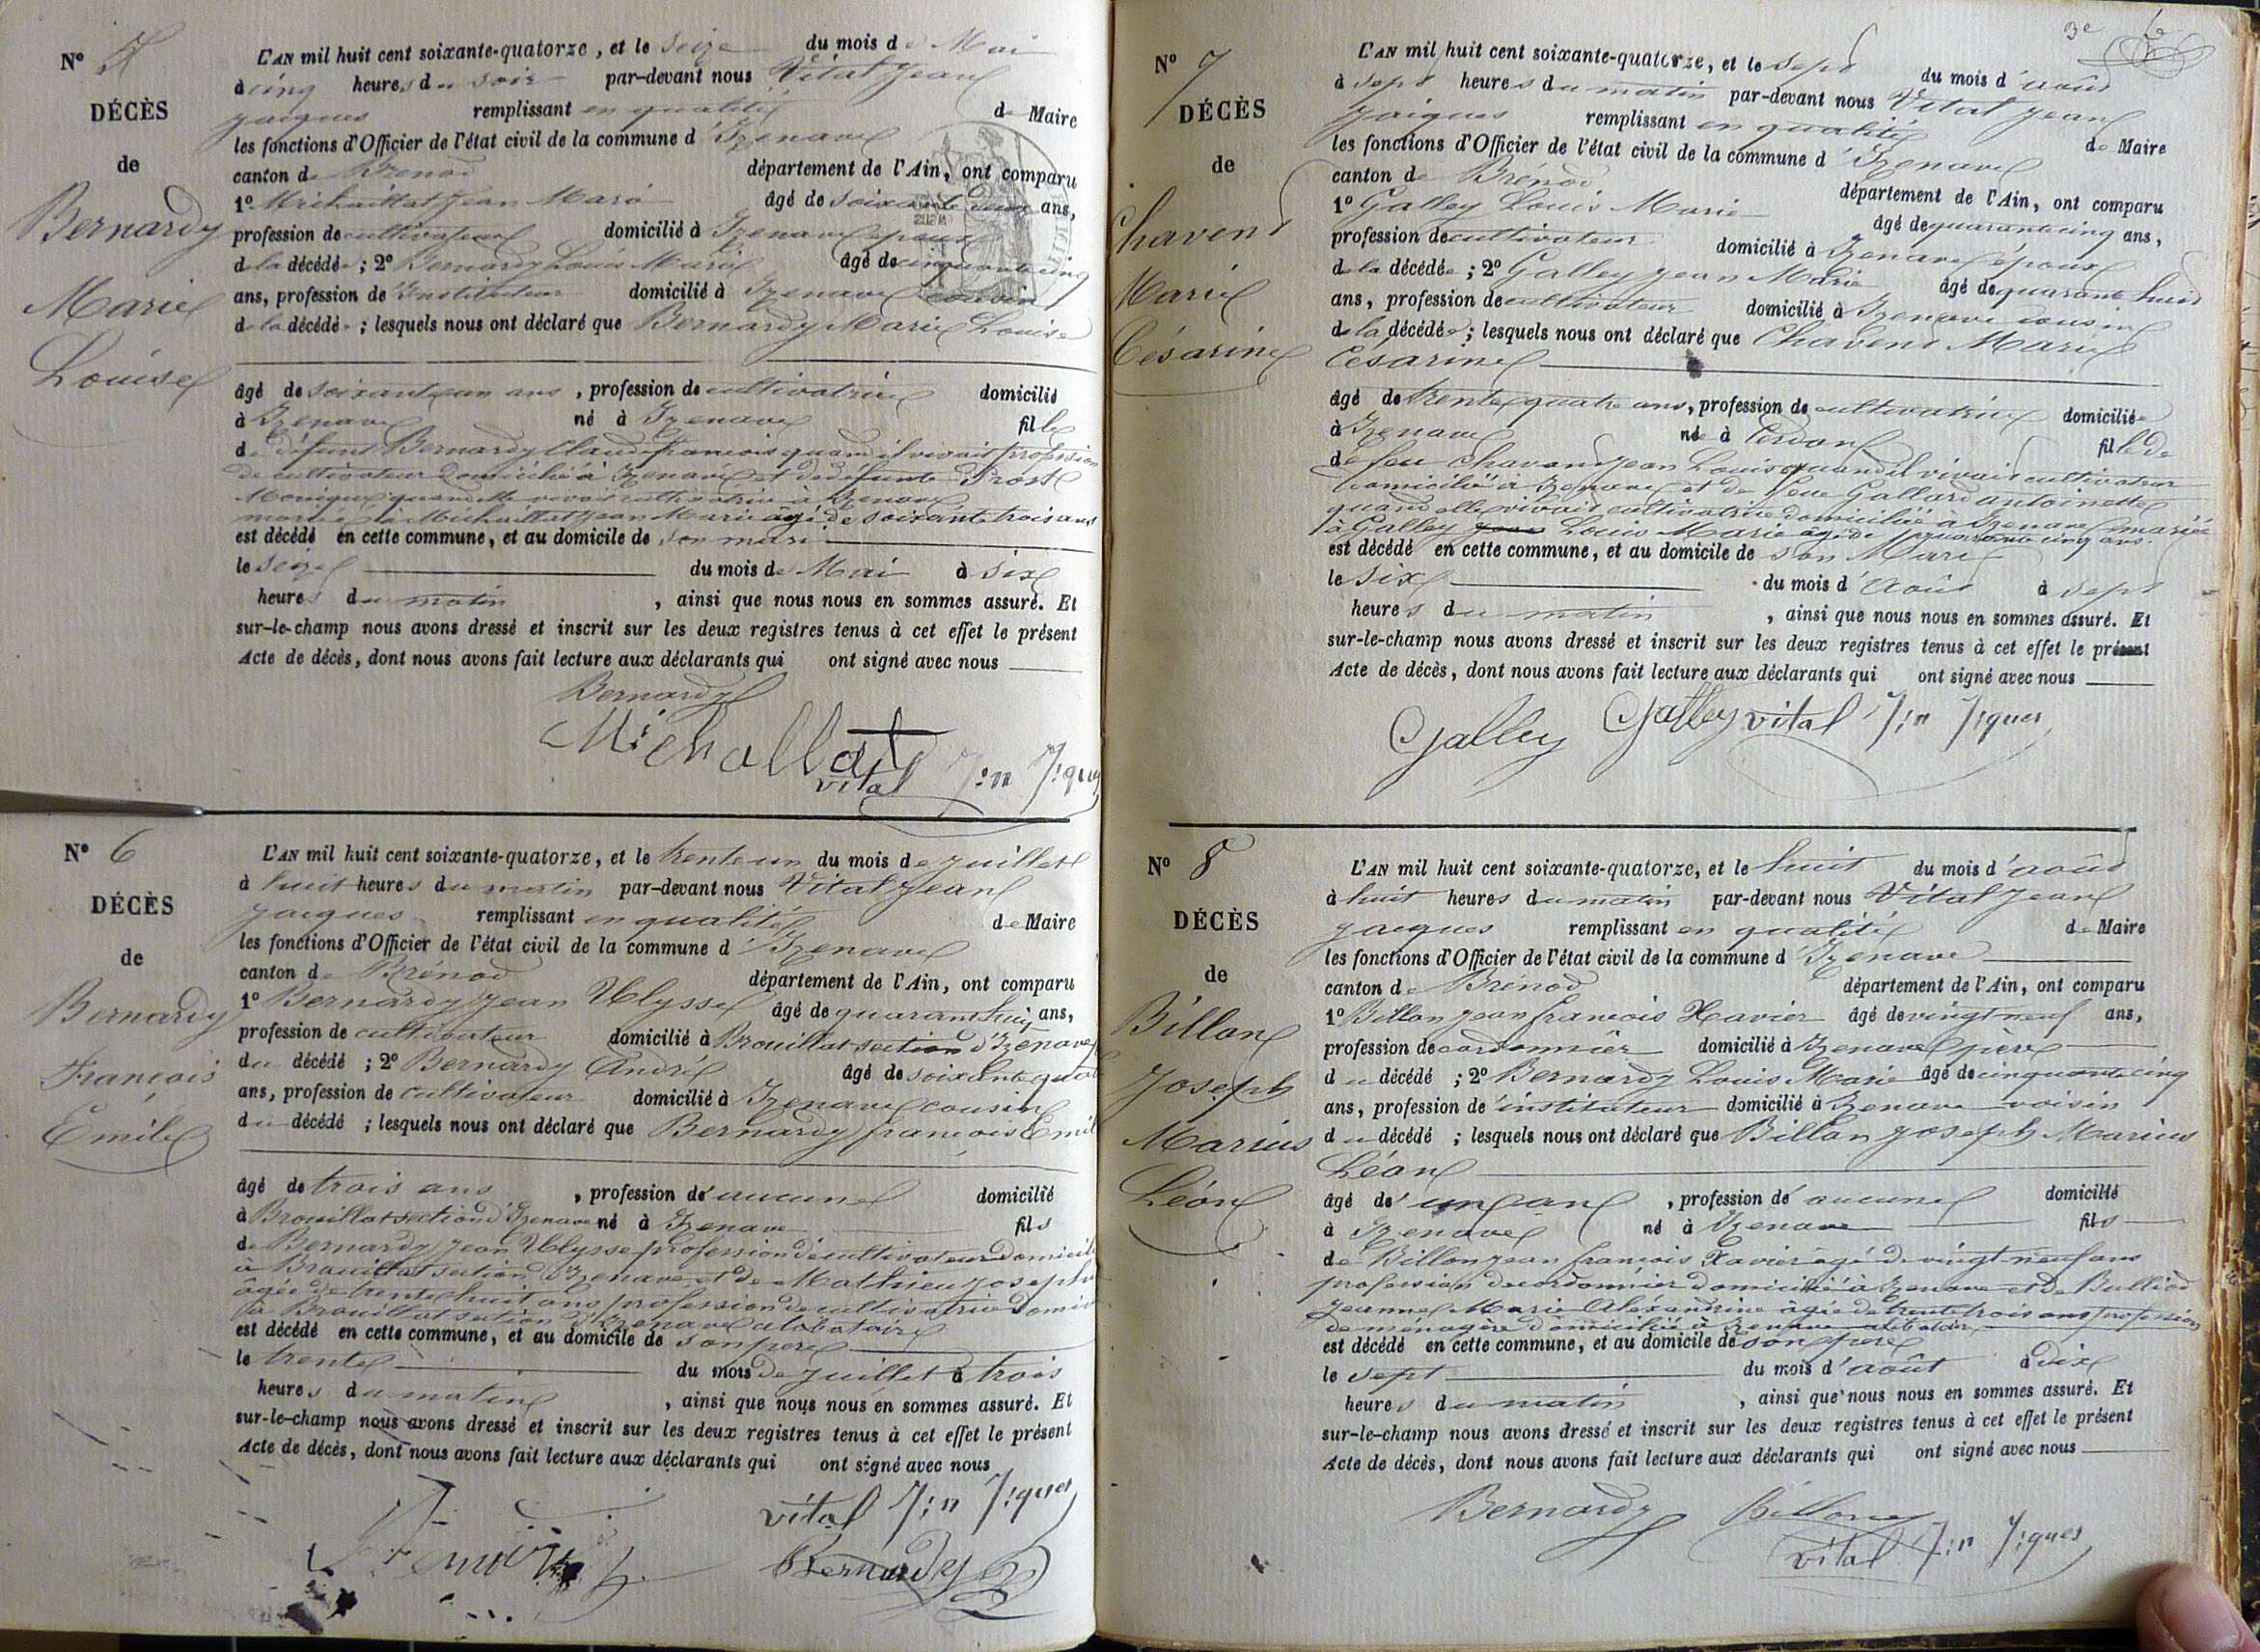 N° 5
DÉCÈS
de
Bernardy
Marie
Louise
L'AN mil huit cent soixante-quatorze, et le Seize du mois de Mai
à cinq heures du soir par-devant nous Vital Jean
Jacques remplissant en qualité de Maire
les fonctions d'Officier de l'état civil de la commune d'Izenave
canton de Brénod département de l'Ain, ont comparu
1° Michaillat Jean Marie âgé de soixante deux ans,
profession de cultivateur domicilié à Izenave époux
de la décédée ; 2° Bernardy Louis Marie âgé de cinquante cinq
ans, profession de Instituteur domicilié à Izenave cousin
de la décédée ; lesquels nous ont déclaré que Bernardy Marie Louise
âgé de soixante un ans , profession de cultivatrice domicilié
à Izenave né à Izenave fille
de défunt Bernardy Claude francois quand il vivait profession
de cultivateur domicilié à Izenave et de défunte Prost
Monique quand elle vivait cultivatrice à Izenave
mariée à Michaillat Jean Marie âgé de soixante trois ans
est décédé en cette commune, et au domicile de son mari
le seize du mois de Mai à six
heures du matin , ainsi que nous nous en sommes assuré. Et
sur-le-champ nous avons dressé et inscrit sur les deux registres tenus à cet effet le présent
Acte de décès, dont nous avons fait lecture aux déclarants qui ont signé avec nous
Bernardy
Michallat
vital J:n J:ques
N° 6
DÉCÈS
de
Bernardy
François
Emile
L'AN mil huit cent soixante-quatorze, et le trente un du mois de juillet
à huit heures du matin par-devant nous Vital Jean
Jacques remplissant en qualité de Maire
les fonctions d'Officier de l'état civil de la commune d'Izenave
canton de Brénod département de l'Ain, ont comparu
1° Bernardy Jean Ulysse âgé de quarante huit ans,
profession de cultivateur domicilié à Brouillat section d'Izenave
du décédé ; 2° Bernardy André âgé de soixante quat
ans, profession de cultivateur domicilié à Izenave cousin
du décédé ; lesquels nous ont déclaré que Bernardy francois Emil
âgé de trois ans , profession de aucune domicilié
à Brouillat section d'Izenave né à Izenave fils
de Bernardy Jean Ulysse profession de cultivateur domicili
à Brouillat section d'Izenave et de Mathieu Josephe
âgée de trente huit ans profession de cultivatrice domici
à Brouillat section d'Izenave
est décédé en cette commune, et au domicile de son père
le trente du mois de juillet à trois
heures du matin , ainsi que nous nous en sommes assuré. Et
sur-le-champ nous avons dressé et inscrit sur les deux registres tenus à cet effet le présent
Acte de décès, dont nous avons fait lecture aux déclarants qui ont signé avec nous
vital J:n J:ques
Bernardy
3e 6
N° 7
DÉCÈS
de
Chavend
Marie
Césarine
L'AN mil huit cent soixante-quatorze, et le sept du mois d'août
à sept heures du matin par-devant nous Vital Jean
Jaiques remplissant en qualité de Maire
les fonctions d'Officier de l'état civil de la commune d'Izenave
canton de Brénod département de l'Ain, ont comparu
1° Galley Louis Marie âgé de quarante cinq ans,
profession de cultivateur domicilié à Izenave époux
de la décédée ; 2° Galley Jean Marie âgé de quarante huit
ans, profession de cultivateur domicilié à Izenave cousin
de la décédée ; lesquels nous ont déclaré que Chavend Marie
Césarine
âgé de trente quatre ans, profession de cultivatrice domiciliée
à Izenave née à Cerdon fille de
de feu Chavand Jean Louis quand il vivait cultivateur
domicilié à Izenave et de feue Gallard antoinette
quand elle vivait cultivatrice domiciliée à Izenave mariée
à Galley Louis Marie âgé de quarante cinq ans.
est décédé en cette commune, et au domicile de son Mari
le six du mois d'août à sept
heures du matin , ainsi que nous nous en sommes assuré. Et
sur-le-champ nous avons dressé et inscrit sur les deux registres tenus à cet effet le présent
Acte de décès, dont nous avons fait lecture aux déclarants qui ont signé avec nous
Galley Galley vital J:n J:ques
N° 8
DÉCÈS
de
Billon
Joseph
Marius
Léon
L'AN mil huit cent soixante-quatorze, et le huit du mois d'août
à huit heures du matin par-devant nous Vital Jean
Jacques remplissant en qualité de Maire
les fonctions d'Officier de l'état civil de la commune d'Izenave
canton de Brénod département de l'Ain, ont comparu
1° Billon Jean francois Xavier âgé de vingt neuf ans,
profession de cordonnier domicilié à Izenave père
du décédé ; 2° Bernardy Louis Marie âgé de cinquante cinq
ans, profession de instituteur domicilié à Izenave voisin
du décédé ; lesquels nous ont déclaré que Billon Joseph Marius
Léon
âgé de un an , profession de aucune domicilié
à Izenave né à Izenave fils
de Billon Jean francois Xavier âgé de vingt neuf ans
profession de cordonnier domicilié à Izenave et de Bulliod
Jeanne Marie Alexandrine âgée de trente trois ans profession
de ménagère domiciliée à Izenave
est décédé en cette commune, et au domicile de son père
le sept du mois d'août à dix
heures du matin , ainsi que nous nous en sommes assuré. Et
sur-le-champ nous avons dressé et inscrit sur les deux registres tenus à cet effet le présent
Acte de décès, dont nous avons fait lecture aux déclarants qui ont signé avec nous
Bernardy Billon
vital J:n J:ques